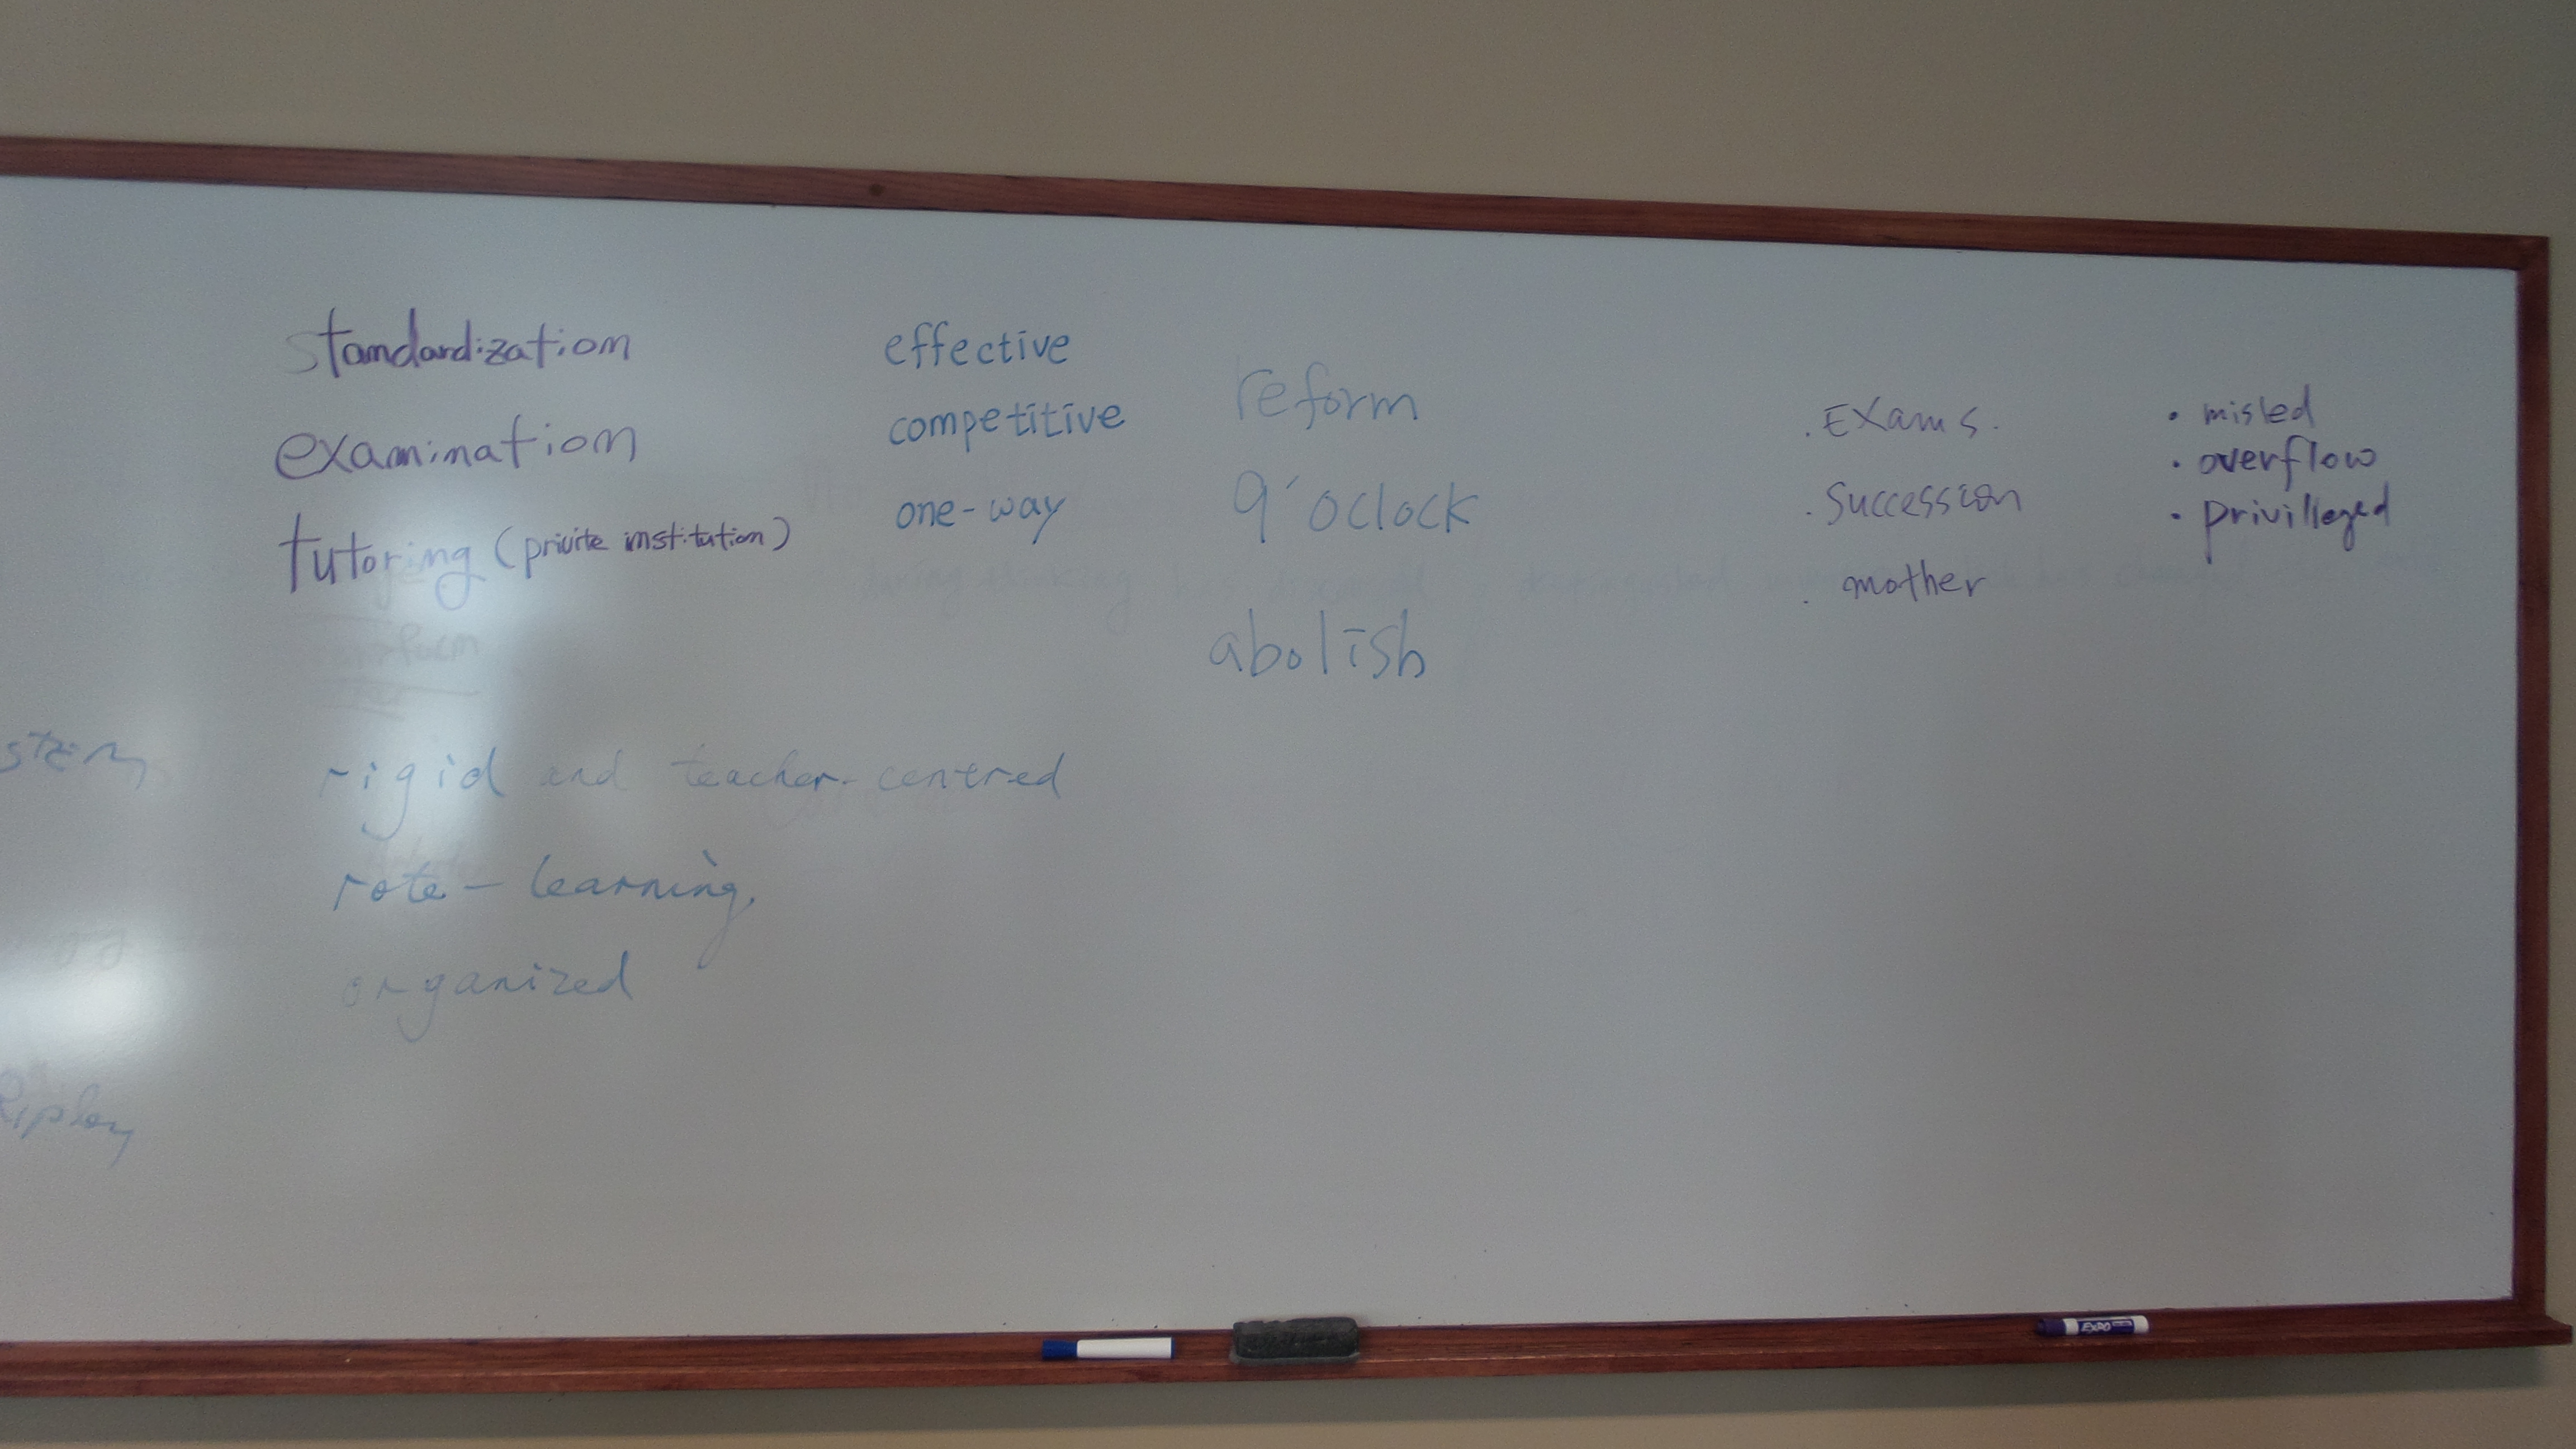 standardization
examination
tutoring (privite institution)
effective
competitive
one-way
reform
9'oclock
abolish
. Exams.
. Succession
. mother
• misled
• overflow
• privilleged
stem
rigid and teacher-centred
rote - learning,
organized
Ripley
EXPO